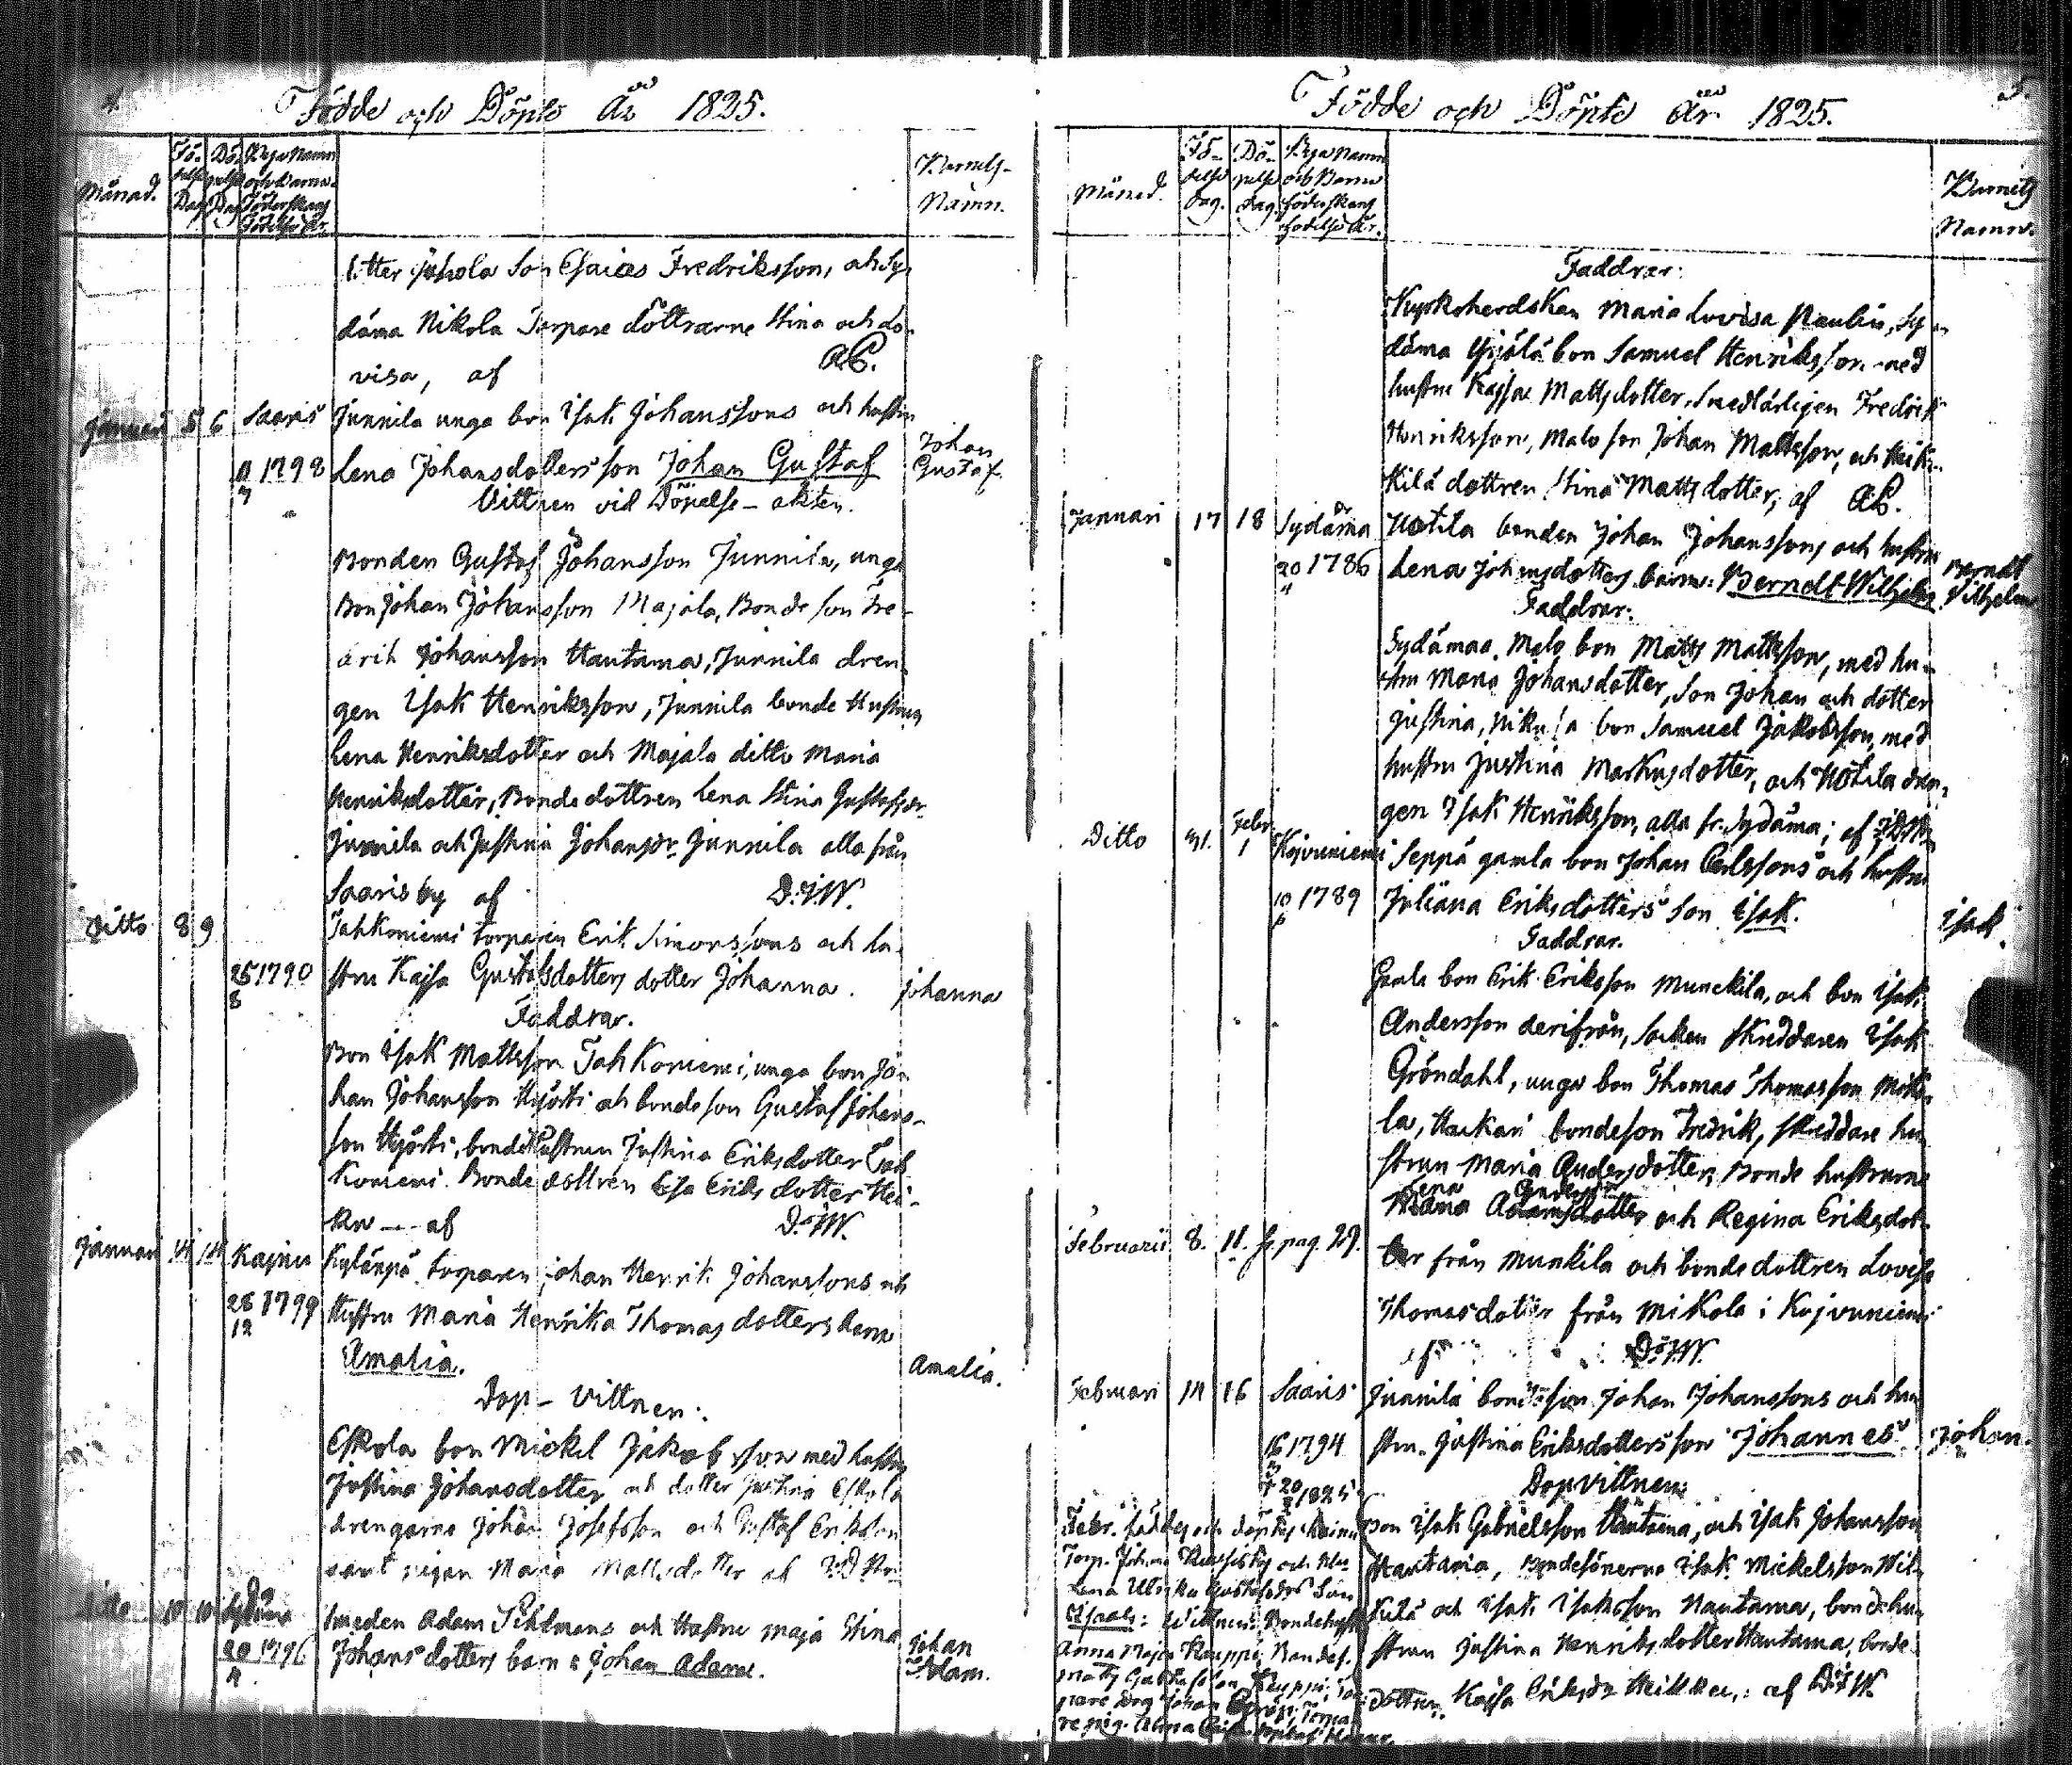 4.
Födde och Döpte År 1825.
Månad.
Fö-
delse
Dag
Dö-
pelse
Dag
Bya Namn
och Barna-
föderskans
Födelse År.
Barnets-
Namn.
dotter son Esaias Fredriksson, och Sy-
däma Nikola Torpare döttrarne Stina och Lo-
visa, af A.P.
Januari 5 6 Saaris Junnila unga bon Isak Johanssons och hustru
11/7 1798 Lena Johansdotters son Johan Gustaf
Johan
Gustaf
Vittnen vid Döpelse-akten.
Bonden Gustaf Johansson Junnila, unga
Bon Johan Johansson Majala, Bonde son Fre-
drik Johansson Hautama, Junnila dren-
gen Isak Henriksson, Junnila bonde Hustrun
Lena Henriksdotter och Majala ditto Maria
Henriksdotter, Bonde dottren Lena Stina Gustafsdr
Junnila och Justina Johansdr Junnila alla från
Saaris by af D:J:W.
Ditto 8 9 Tahkoniemi torparen Erik Simonssons och hu-
25/8 1790 stru Kajsa Gustafsdotters dotter Johanna. Johanna
Faddrar.
Bon Isak Mattsson Tahkoniemi, unga bon Jo-
han Johansson Hyörti och bondeson Gustaf Johans-
son Hyörti, bondehustrun Justina Eriksdotter Tah-
koniemi. Bonde dottren Eva Eriksdotter Hei-
ku -- af D:J:W.
Januari 14 14 Kajnu Kylänpä torparen Johan Henrik Johanssons och
28/12 1799 Hustru Maria Henrika Thomas dotters barn
Amalia. Amalia.
Dop-Vittnen:
Eskola bon Mickel Jakobsson med hustru
Justina Johansdotter och dotter Justina Eskola
drengarne Johan Josefsson och Gustaf Eriksson
samt pigan Maria Mattsdotter af
Ditto 10 10 Sydäma Smeden Adam Sihlmans och Hustru Maja Stina
20/4 1796 Johansdotters barn: Johan Adam.
Johan
Adam.
5.
Födde och Döpte År 1825.
Månad.
Fö-
delse
dag.
Dö-
pelse
dag.
Bya Namn
och Barna
föderskans
födelse År.
Barnets
Namn.
Faddrar:
Kyrkoherdskan Maria Lovisa Paulin, Sy-
däma Yrjälä bon Samuel Henriksson med
hustru Kajsa Mattsdotter, Smedlärlijen Fredrik
Henriksson, Malo son Johan Mattsson, och Heik-
kilä dottren Stina Mattsdotter, af A.P.
Januari 17 18 Sydäma Uotila bonden Johan Johanssons och hustru
20/4 1786 Lena Johansdotters barn: Berndt Wilhelm.
Berndt
Vilhelm
Faddrar:
Sydämaa Malo bon Matts Mattsson, med hu-
stru Maria Johansdotter, Son Johan och dotter
Justina, Nikula bon Samuel Jakobsson, med
hustru Justina Markusdotter, och Uotila dren-
gen Isak Henriksson, alla fr. Sydäma; af
Ditto 31. Febr. 1 Kojvuniemi Seppä gamla bon Johan Carlssons och hustru
10 1789 Juliana Eriksdotters Son Isak. Isak.
Faddrar.
Gamla bon Erik Eriksson Munckila, och bon Isak
Andersson derifrån, Socken Skreddaren Isak
Gröndahl, unga bon Thomas Thomasson Miko-
la, Harkari bondeson Fredrik, skreddare hu-
strun Maria Andersdotter, Bonde hustrurne
Lena Andersdr
Adamsdotter och Regina Eriksdot-
ter från Munkila och bonde dottren Lovisa
Thomasdotter från Mikola i Kojvuniemi
af D:J:W.
Februarii 8. 11. se pag. 29.
Februari 14 16 Saaris Junnila bondeson Johan Johanssons och hu-
16/3 1794 stru Justina Eriksdotters son Johannes Johan.
† 20/2 1825
Dopvittnen:
Bon Isak Gabrielsson Hautama, och Isak Johansson
Hautama, Bondesönerna Isak Mickelsson Wil-
kilä och Isak Isaksson Hautama, bondehu-
strun Justina Henriksdotter Hautama, bonde
dottren Kajsa Eriksdr Heikku; af D:J:W.
Lena Ulrika Gustafsdrs Son
Vittnen: Bondehustr.
Anna Maja Kauppi, Bondes.